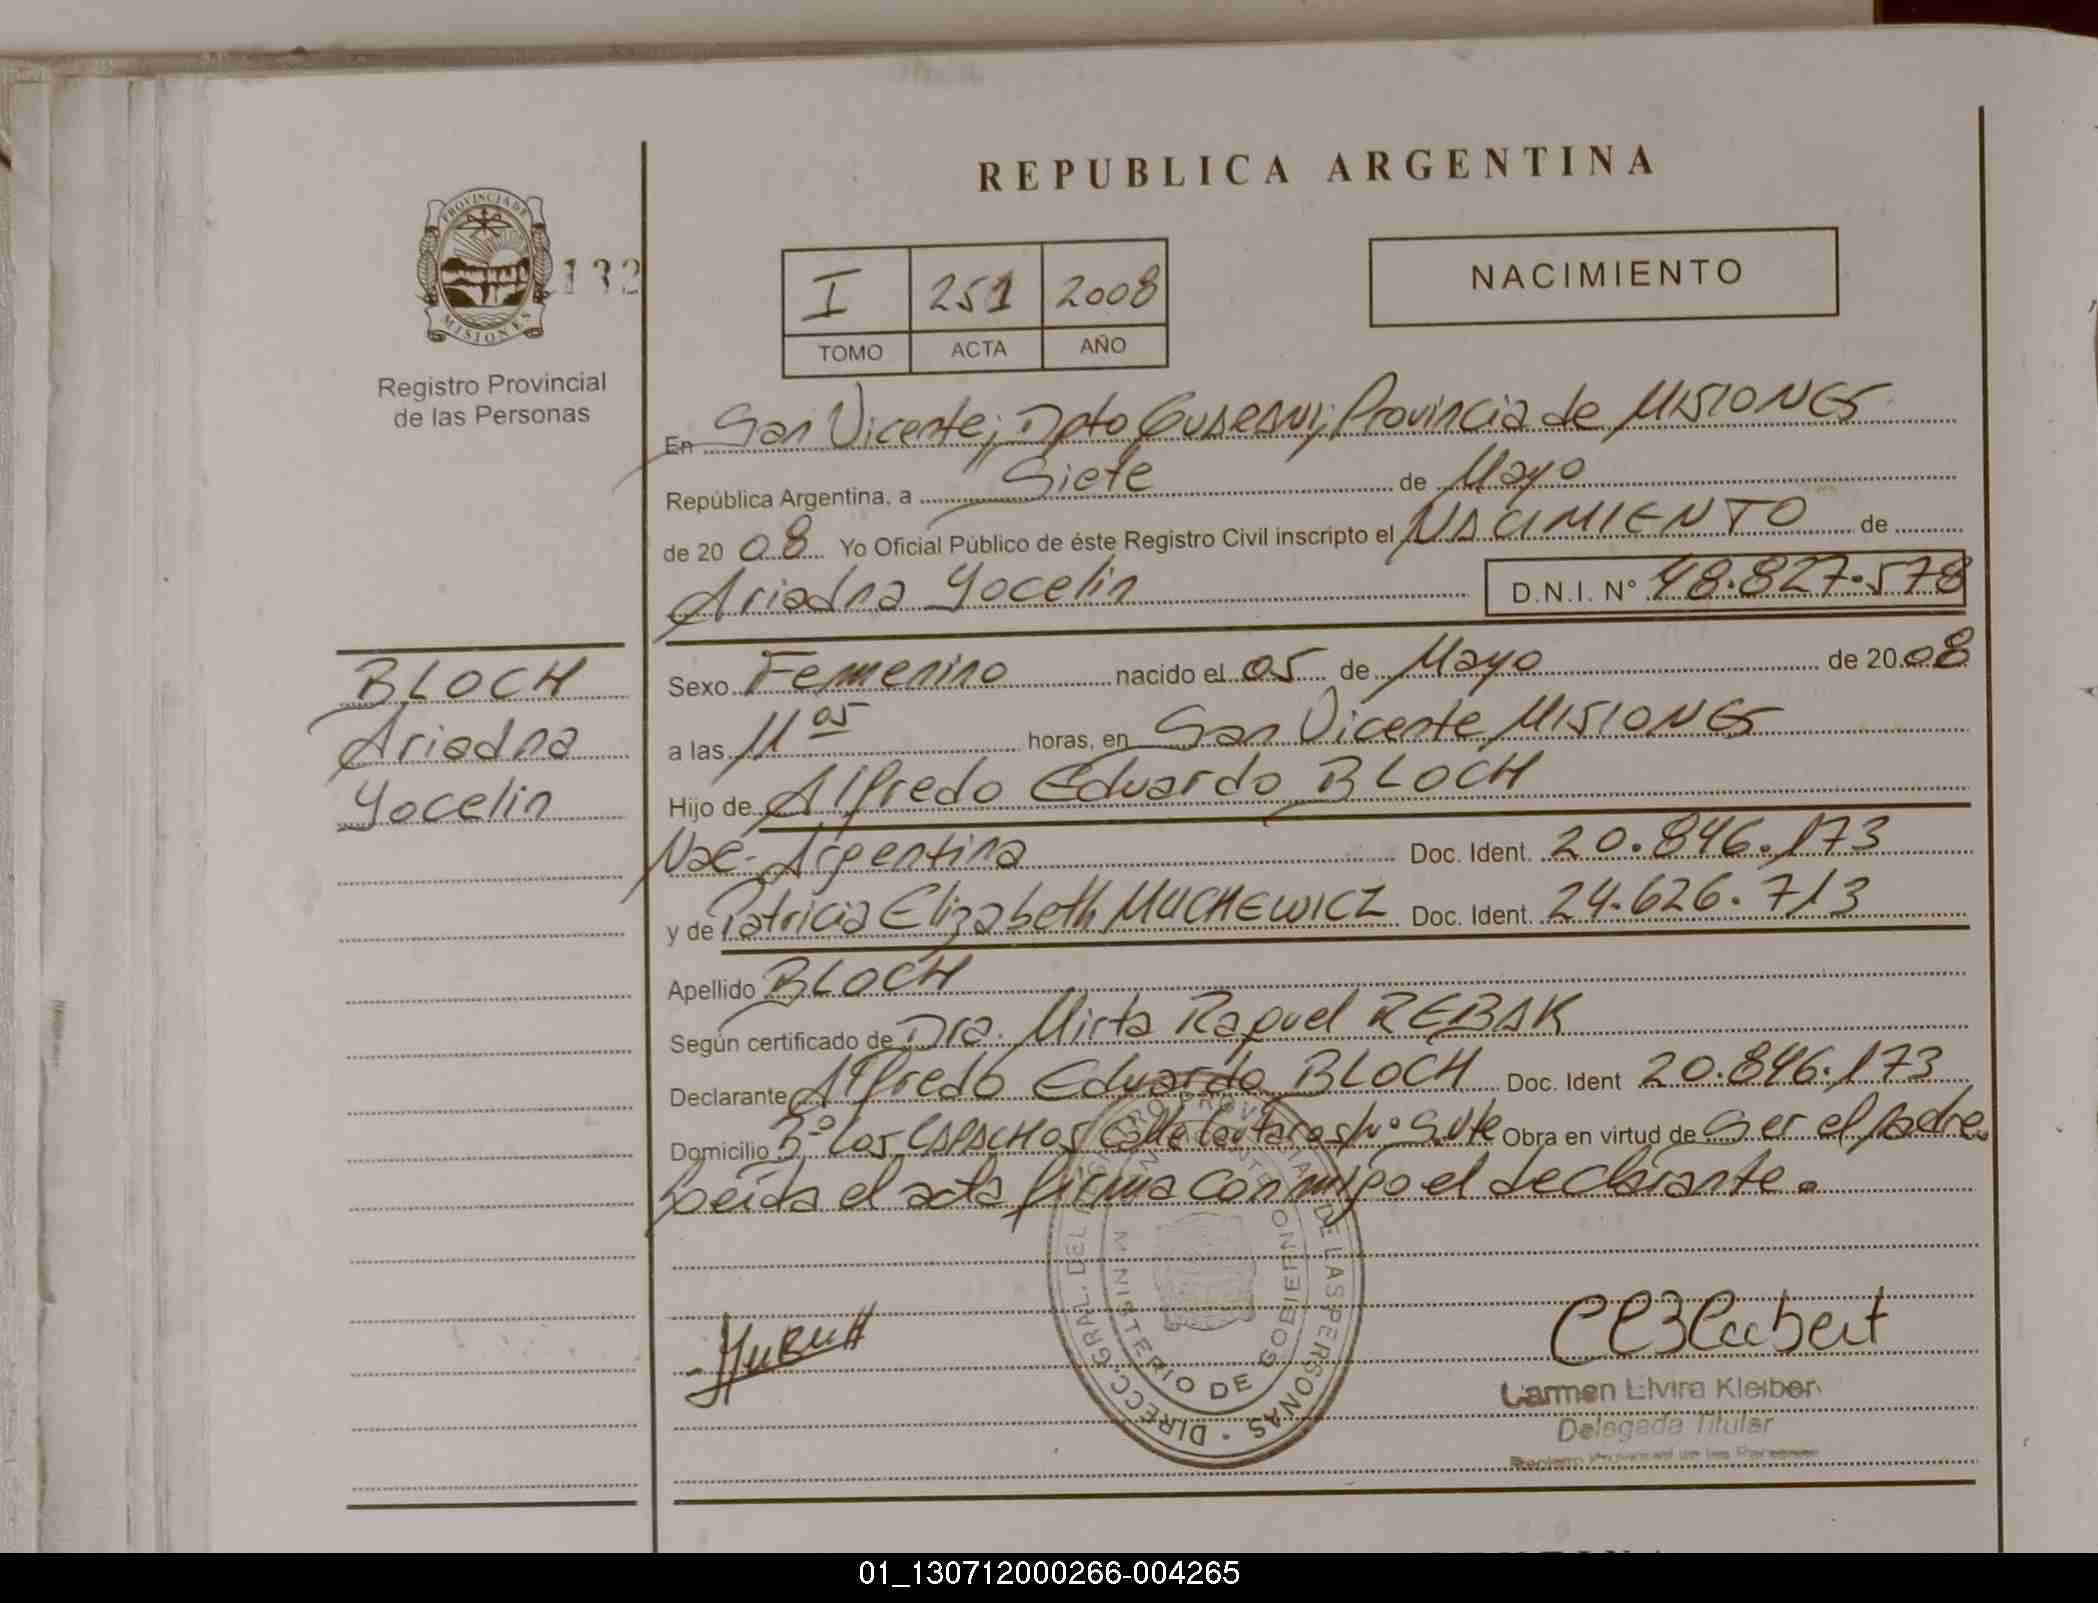 REPUBLICA ARGENTINA
PROVINCIA DE
MISIONES
132
Registro Provincial
de las Personas
I 251 2008
TOMO ACTA AÑO
NACIMIENTO
En San Vicente; Dpto Guarani; Provincia de MISIONES
República Argentina, a Siete de Mayo
de 20 08 Yo Oficial Público de éste Registro Civil inscripto el NACIMIENTO de
Ariadna Yocelin D.N.I. Nº 48.827.578
BLOCH
Ariadna
Yocelin
Sexo Femenino nacido el 05 de Mayo de 20 08
a las 11 05 horas, en San Vicente MISIONES
Hijo de Alfredo Eduardo BLOCH
Nac. Argentina Doc. Ident. 20.846.173
y de Patricia Elizabeth MUCHEWICZ Doc. Ident. 24.626.713
Apellido BLOCH
Según certificado de Dra. Mirta Raquel REBAK
Declarante Alfredo Eduardo BLOCH Doc. Ident 20.846.173
Domicilio Bº Los CAPACHOS Calle Obra en virtud de Ser el padre.
Leída el acta firma conmigo el declarante.
DIRECC. GRAL. DEL REGISTRO PROVINCIAL DE LAS PERSONAS
MINISTERIO DE GOBIERNO
Carmen Elvira Kleiber
Delegada Titular
Registro Provincial de las Personas
01_130712000266-004265